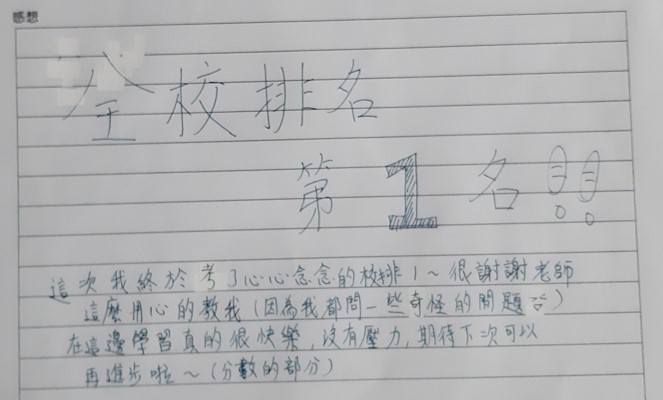 感想
全校排名
第1名!!
這次我終於考了心心念念的校排1~很謝謝老師
這麼用心的教我(因為我都問一些奇怪的問題哈)
在這邊學習真的很快樂,沒有壓力,期待下次可以
再進步啦~(分數的部分)